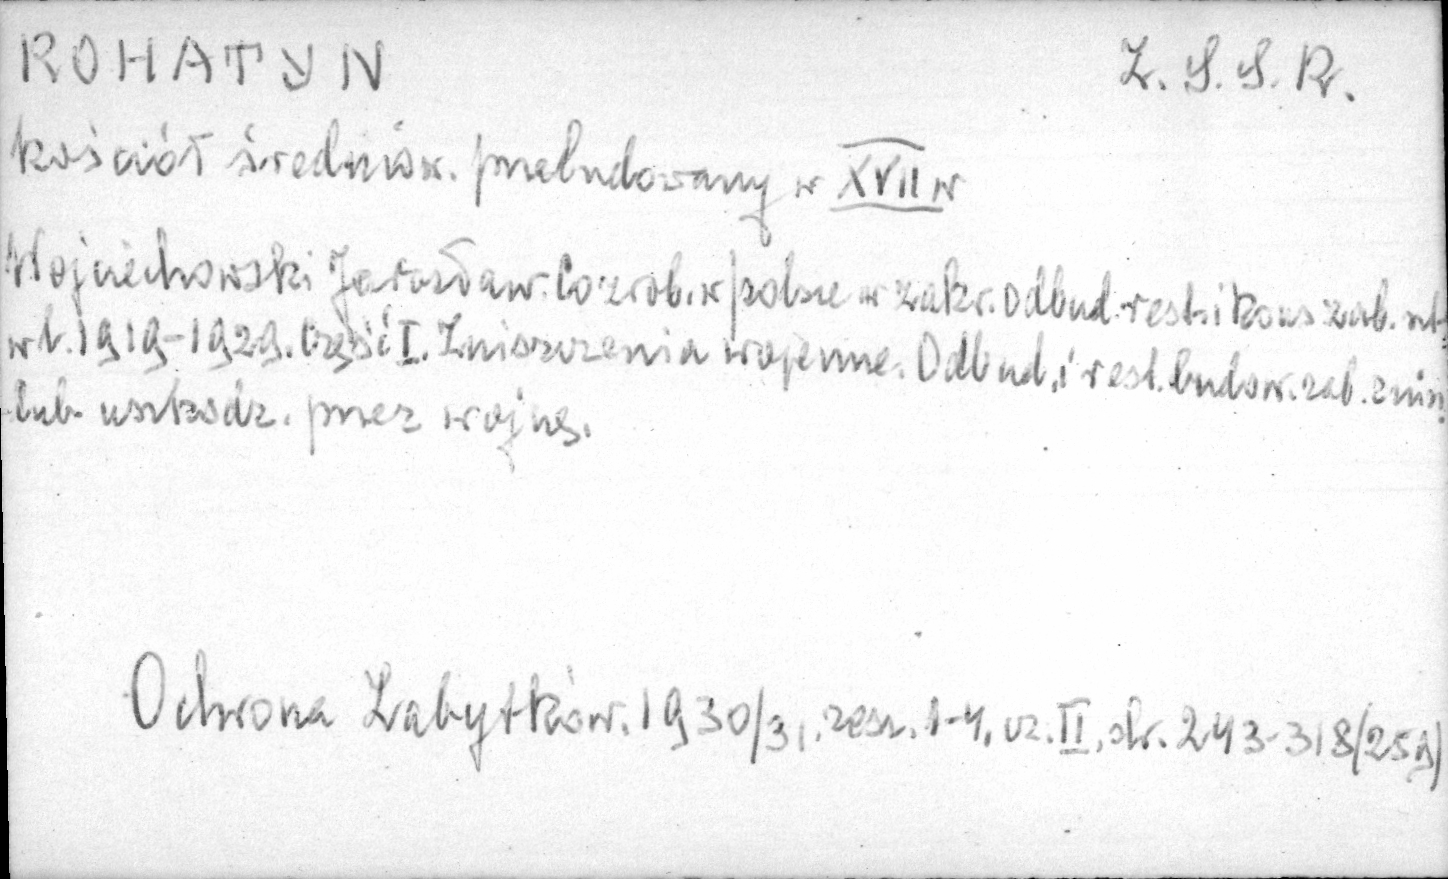 ROHATYN Z.S.S.R.
kościół średniow. przebudowany w XVII w
Wojciechowski Jarosław. Co zrob. w polsce w zakr. odbud. rest. i kons zab. szt.
w l. 1919-1929. Część I. Zniszczenia wojenne. Odbud. i rest. budow. zab. znisz.
lub uszkodz. przez wojnę.
Ochrona Zabytków. 1930/31. zesz. 1-4, cz. II, str. 243-318/259)